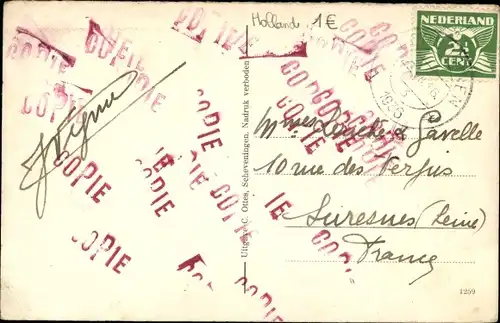 Holland 1€
NEDERLAND
2½
CENT
1935
COPIE
COPIE
COPIE
COPIE
COPIE
COPIE
COPIE
COPIE
COPIE
COPIE
COPIE
COPIE
Uitgave C. Ottes, Scheveningen. Nadruk verboden
10 rue des Verjus
Suresnes (Seine)
France
1259